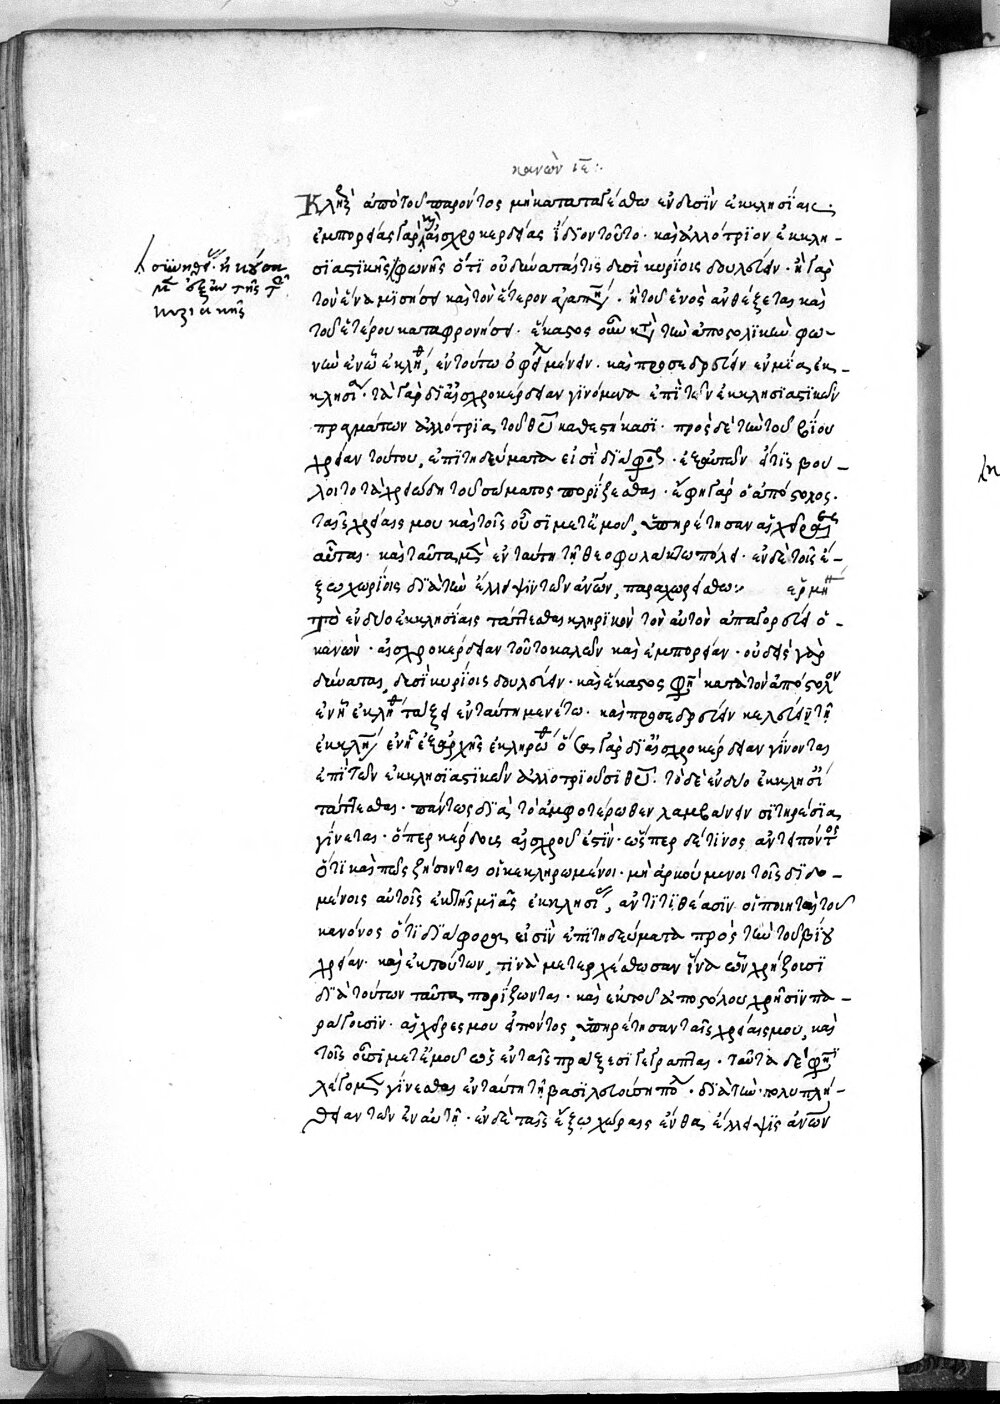 κανὼν ιε:·
Κληρικὸς ἀπὸ τοῦ παρόντος μὴ κατατατέσθω ἐν δυσὶν ἐκκλησίαις·
ἐμπορείας γὰρ καὶ αἰσχροκερδείας ἴδιον τοῦτο· καὶ ἀλλότριον ἐκκλη-
σιαστικῆς φωνῆς ὅτι οὐ δύναταί τις δυσὶ κυρίοις δουλεύειν· ἢ γὰρ
τὸν ἕνα μισήσει καὶ τὸν ἕτερον ἀγαπήσει· ἢ τοῦ ἑνὸς ἀνθέξεται καὶ
τοῦ ἑτέρου καταφρονήσει· ἕκαστος οὖν κατὰ τὴν ἀποστολικὴν φω-
νὴν ἐν ᾧ ἐκλήθη, ἐν τούτῳ ὀφείλει μένειν· καὶ προσεδρεύειν ἐν μιᾷ ἐκ-
κλησίᾳ· τὰ γὰρ δι' αἰσχροκέρδειαν γινόμενα ἐπὶ τῶν ἐκκλησιαστικῶν
πραγμάτων ἀλλότρια τοῦ θυ καθεστήκασι· πρὸς δὲ τὴν τοῦ βίου
χρείαν τούτου, ἐπιτηδεύματα εἰσὶ διάφορα· ἐξ αὐτῶν εἴ τις βού-
λοιτο τὰ χρειώδη τοῦ σώματος ποριζέσθω· ἔφη γὰρ ὁ ἀπόστολος·
ταῖς χρείαις μου καὶ τοῖς οὖσι μετ' ἐμοῦ, ὑπηρέτησαν αἱ χεῖρες
αὗται· καὶ ταῦτα μὲν ἐν ταύτῃ τῇ θεοφυλάκτῳ πόλει· ἐν δὲ τοῖς ἔ-
ξω χωρίοις διὰ τὴν ἔλλειψιν τῶν ἀνῶν, παραχωρείσθω: ἑρμη
Τὸ ἐν δυο ἐκκλησίαις τάττεσθαι κληρικὸν τὸν αὐτὸν ἀπαγορεύει ὁ
κανών· αἰσχροκέρδειαν τοῦτο καλῶν καὶ ἐμπορείαν· οὐδεὶς γὰρ
δύναται, δυσὶ κυρίοις δουλεύειν· καὶ ἕκαστος φησὶ κατὰ τὸν ἀπόστολον
ἐν ᾗ ἐκλήθη τάξει ἐν ταύτῃ μενέτω· καὶ προσεδρεύειν κελεύει τῇ
ἐκκλησίᾳ ἐν ᾗ ἐξ ἀρχῆς ἐκληρώθη ὅσα γὰρ δι' αἰσχροκέρδειαν γίνονται
ἐπὶ τῶν ἐκκλησιαστικῶν ἀλλότριοῦσι θυ· τὸ δὲ ἐν δυο ἐκκλησίαις
τάττεσθαι· πάντως διὰ τὸ ἀμφοτέρωθεν λαμβάνειν σιτηρέσια,
γίνεται· ὅπερ κέρδους αἰσχροῦ ἐστίν· ὥσπερ δέ τινος ἀντειπόντος
ὅτι καὶ πῶς ζήσονται οἱ κεκληρωμένοι· μὴ ἀρκούμενοι τοῖς διδο-
μένοις αὐτοῖς ἐκ τῆς μιᾶς ἐκκλησίας, ἀντιτιθέασιν οἱ ποιηταὶ τοῦ
κανόνος ὅτι διάφορα εἰσὶν ἐπιτηδεύματα πρὸς τὴν τοῦ βίου
χρείαν· καὶ ἐκ τούτων, τινὰ μετερχέσθωσαν ἵνα ὧν χρήζουσι
διὰ τούτων ταῦτα πορίζωνται· καὶ ἐκ τοῦ ἀποστόλου χρῆσιν πα-
ράγουσιν· αἱ χεῖρες μου εἰπόντος, ὑπηρέτησαν ταῖς χρείαις μου, καὶ
τοῖς οὖσι μετ' ἐμοῦ ὡς ἐν ταῖς πράξεσι γέγραπται· ταῦτα δέ φησι
λέγομεν γίνεσθαι ἐν ταύτῃ τῇ βασιλευούσῃ πόλει· διὰ τὴν πολυπλή-
θειαν τῶν ἐν αὐτῇ· ἐν δὲ ταῖς ἔξω χώραις ἔνθα ἔλλειψις ἀνῶν